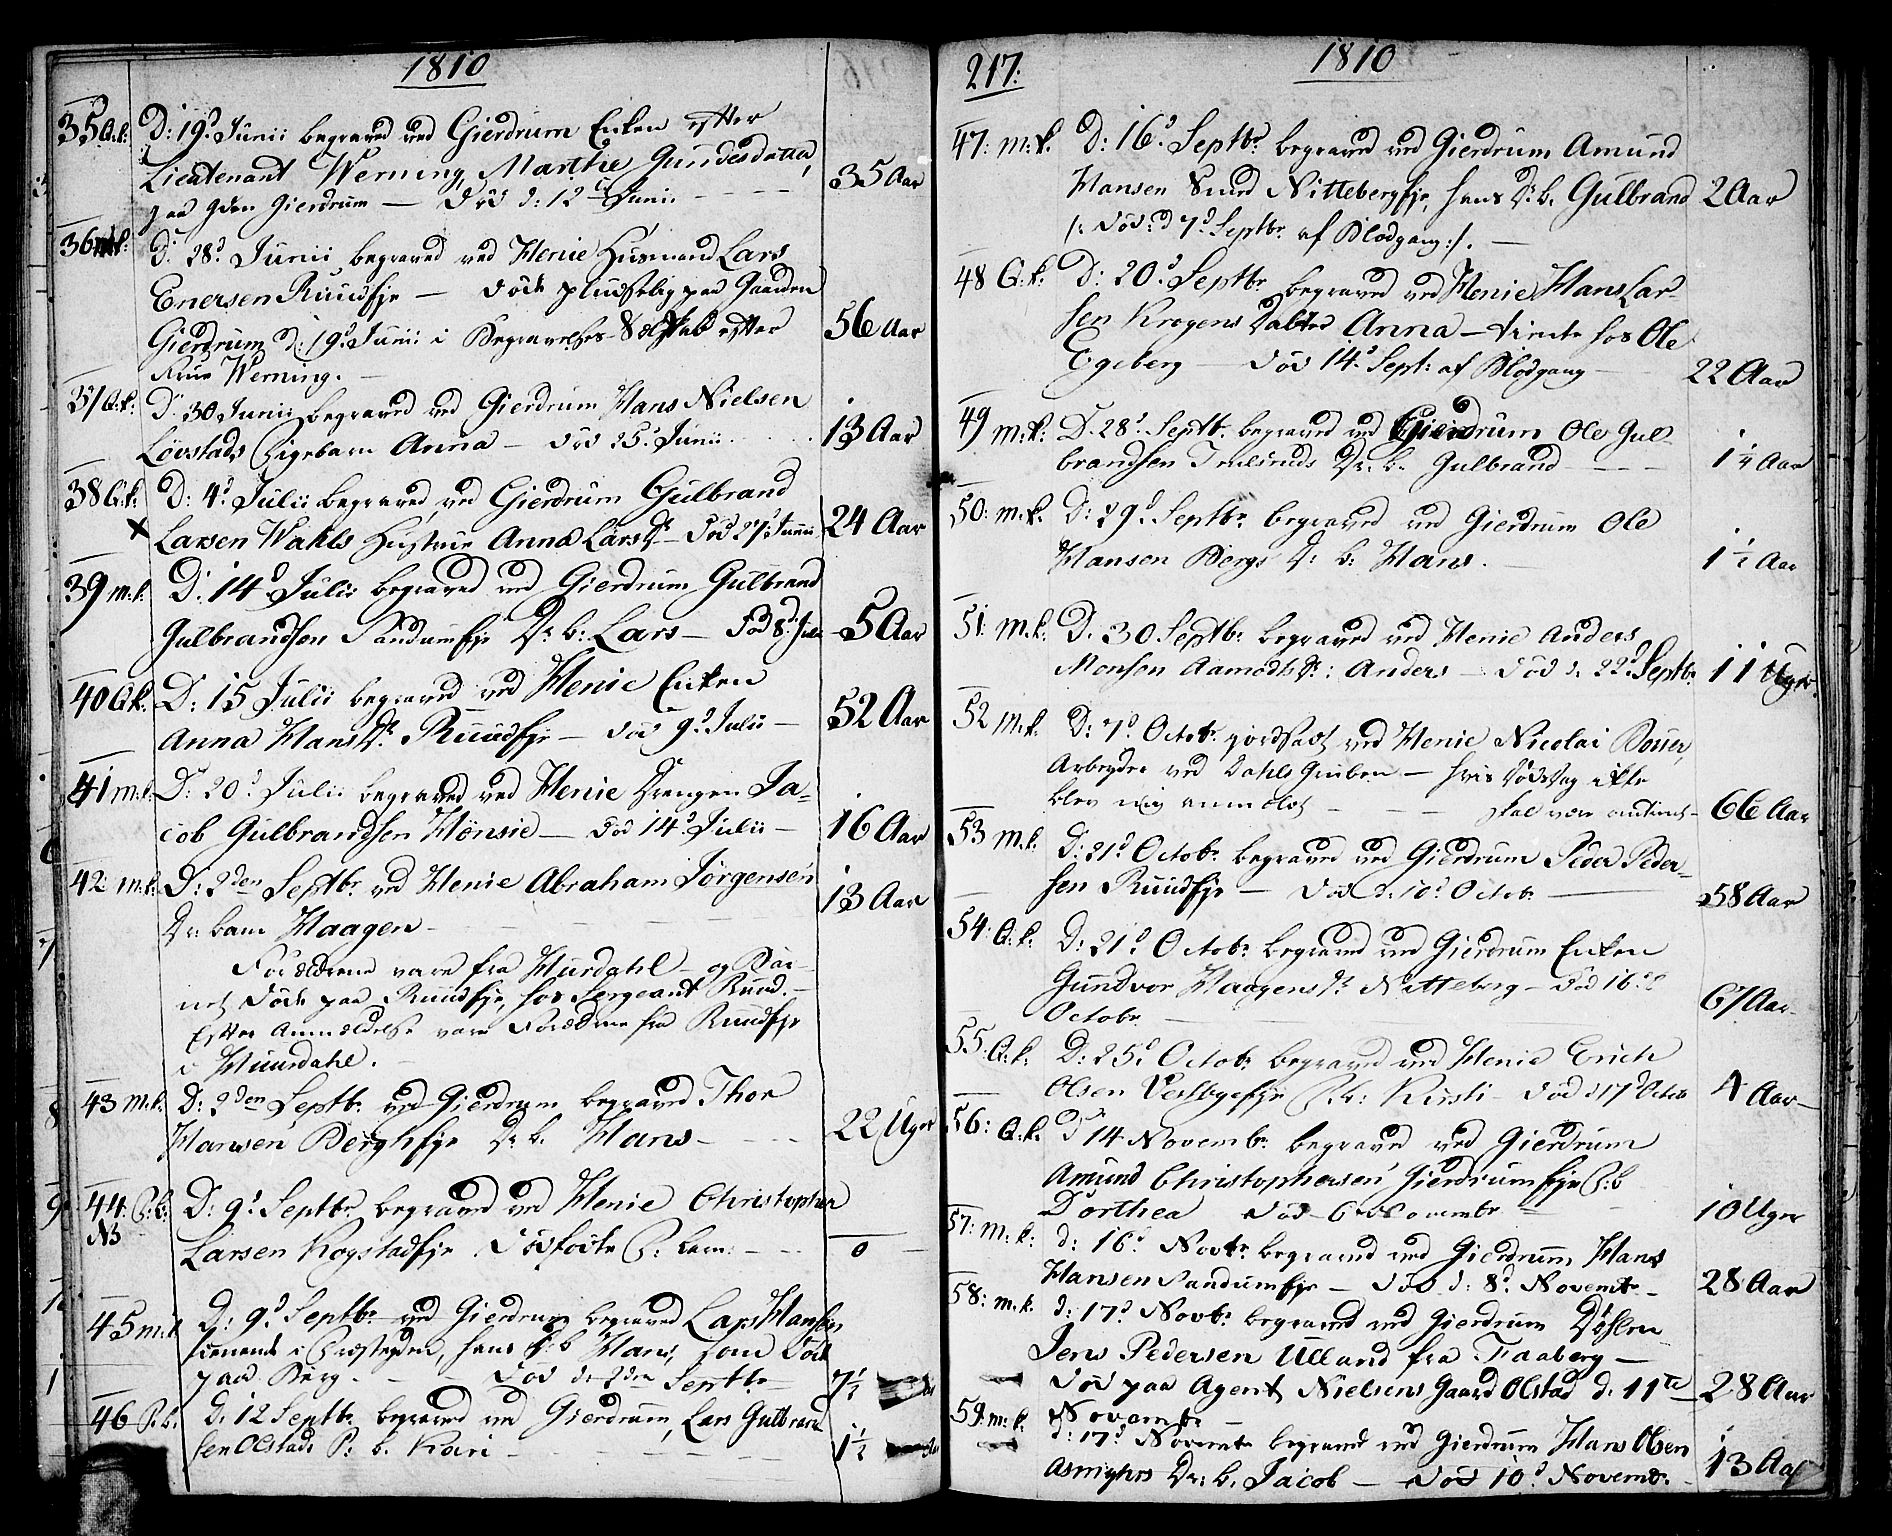 1810
35 Q:k: D: 19d Junii begraved ved Gierdrum Enken efter
Lieutenant Werning, Marthe Gundesdatter,
paa Gden Gierdrum — Död d: 12te Junii — 35 Aar
36 m:k: D: 28d Junii begraved ved Henie Husmand Lars
Enersen Ruudsfje — döde pludselig paa Gaarden
Gierdrum d: 19d Junii i Begravelses Selskab efter 56 Aar
Frue Werning. —
37 Q:k: D: 30 Junii begraved ved Gierdrum Hans Nielsen
Lövstads Pigebarn Anna — död 25d Junii 13 Aar
38 Q:k: D: 4d Julii begraved ved Gierdrum Gulbrand
Larsen Wahls Hustrue Anna Larsdr — död 27d Junii 24 Aar
39 m.k. D: 14d Julii begraved ved Gierdrum Gulbrand
Gulbrandsen Sandumsfje Dr: b: Lars — död 8d Julii 5 Aar
40 Q:k. D: 15 Julii begraved ved Henie Enken
Anna Hansdr. Ruudsfje — död 9d Julii — 52 Aar
41 m:k. D: 20d Julii begraved ved Henie Drengen Ja-
cob Gulbrandsen Hönsie — död 14d Julii — 16 Aar
42 m.k. D: 2den Septbr. ved Henie Abraham Jörgensen
Dr: barn Haagen — 13 Aar
Forældrene vare fra Hurdahl — og Bar-
net döde paa Ruudsfje, hos Sergeant Ruud. —
Efter Anmeldelse vare Forældrene fra Ruudsfje
i Huurdahl. —
43 m.k: D: 2den Septb. ved Gierdrum begraved Thor
Hansen Berghsfje Dr. b. Hans — 22 Uger
44: P:b: D: 9d Septbr. begraved ved Henie Christopher
NB Larsen Kogstadsfje dödfödte P: barn: — 0
45 m:k D: 9d Septbr ved Gierdrum begraved Lars Hansen
tienende i Præstegden, hans b Hans, som döde
paa Berg. — död d: 2den Septbr — 7 1/2
46 P:b. D: 12 Septbr. begraved ved Gierdrum, Lars Gulbrand
sen Olstads P: b. Kari — 1 1/2
217: 1810
47: m:k: D: 16d Septbr. begraved ved Gierdrum Amund
Hansen Nittebergsfje, hans Dr. b. Gulbrand 2 Aar
/: död d 7d Septbr. af Blodgang :/. —
48 Q:k: D: 20d Septbr. begraved ved Henie Hans Lar-
sen Krogens datter Anna — tiente hos Ole
Egeberg — död 14d Sept: af Blodgang — 22 Aar
49 m:k: D. 28d Septb. begraved ved Gierdrum Ole Gul-
brandsen Dr: b. Gulbrand — 1 1/4 Aar
50: m.k. D: 29d Septbr. begraved ved Gierdrum Ole
Hansen Bergs Dr: b: Hans. — 1 1/2 Aar
51: m.k: D. 30 Septbr. begraved ved Henie Anders
Monsen Aamodts Dr: Anders — död d. 22d Septbr. 11 Uger
52 m.k: D: 7d Octobr. jordfæst ved Henie Nicolai
Arbeyder ved Dahls Gruben — hvis Dödsdag ikke
blev mig anmeldt — skal være — 66 Aar
53 m.k. D: 21d Octobr. begraved ved Gierdrum Peder Peder-
sen Ruudsfje — död d: 10d Octob. — 58 Aar
54: Q:k. D: 21d Octobr. begraved ved Gierdrum Enken
Gundvor Haagensdr. Nitteberg — död 16de
Octobr. — 67 Aar
55: Q:k. D: 25d Octobr. begraved ved Henie Erich
Olsen Vestbyesfje P: b: Kirsti — död d 17d Octob 4 Aar —
56: Q:k: D 14 Novembr. begraved ved Gierdrum
Amund Christophersen Gierdrumsfje P:b
Dorthea död 6 Novembr — 10 Uger
57: m:k: d: 16d Novbr. begraved ved Gierdrum Hans
Hansen Sandumsfje — död d: 8d Novembr — 28 Aar
58: m.k. d: 17d Novbr: begraved ved Gierdrum
Jens Pedersen Ulland fra Faaberg —
död paa Agent Nielsens Gaard Olstad d: 11te 28 Aar
Novembr
59: m:k. d: 17d Novembr begraved ved Gierdrum Hans Olsen
Dr: b. Jacob — död 10d Novembr. 13 Aar